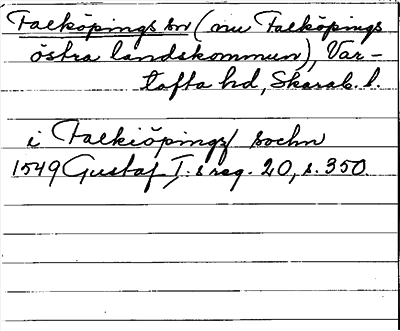 Falköpings sn (nu Falköpings
östra landskommun), Var-
tofta hd, Skarab. l.
i Falkiöpingz sochn
1549 Gustaf I:s reg. 20, s. 350.